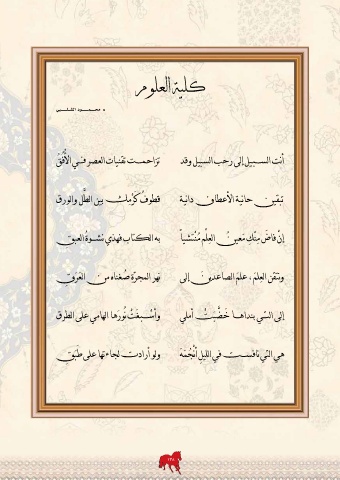 كلية العلوم
د. محمود الشلبي
أنت السبيل إلى رحب السبيل وقد تزاحمت تقنيات العصر في الأُفُقِ
تبقين حانية الأعطاف دانية قطوفُ كرمك بين الطَّلِّ والورقِ
إنْ فاضَ منكِ معينُ العلم مُنْتشياً به الكتاب فهذي نشوةُ العبقِ
ونتقن العِلمَ، علمَ الصاعدين إلى نهر المجرّة صغناه من العَرَقِ
إلى التي بنداها خَضَّبَتْ أملي وأسبغتْ نُورَها الهامي على الطرقِ
هي التي نافست في الليل أنْجُمَهُ ولو أرادت لجاءتها على طَبَقِ
١٣٨